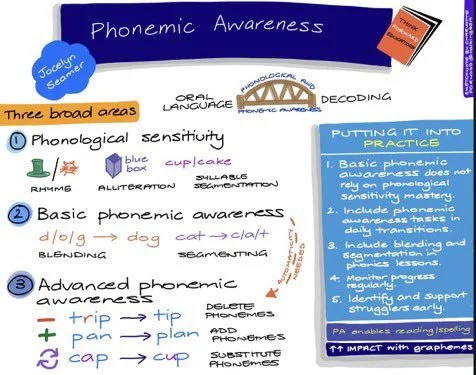 Phonemic Awareness
THINK
FORWARD
EDUCATORS
Jocelyn
Seamer
Three broad areas
ORAL
LANGUAGE
PHONOLOGICAL AND
PHONEMIC AWARENESS
DECODING
1 Phonological sensitivity
RHYME
blue
box
ALLITERATION
cup/cake
SYLLABLE
SEGMENTATION
2 Basic phonemic awareness
d/o/g → dog
BLENDING
cat → c/a/t
SEGMENTING
AUTOMATICITY
NEEDED
3 Advanced phonemic
awareness
− trip → tip
DELETE
PHONEMES
+ pan → plan
ADD
PHONEMES
cap → cup
SUBSTITUTE
PHONEMES
PUTTING IT INTO
PRACTICE
1. Basic phonemic
awareness does not
rely on phonological
sensitivity mastery.
2. Include phonemic
awareness tasks in
daily transitions.
3. Include blending and
segmentation in
phonics lessons.
4. Monitor progress
regularly.
5. Identify and support
strugglers early.
PA enables reading/spelling
↑↑ IMPACT with graphemes